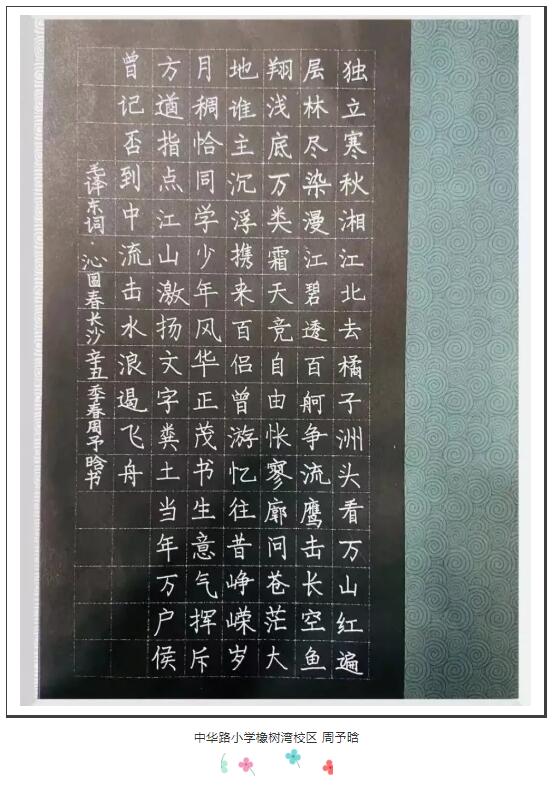 独立寒秋湘江北去橘子洲头看万山红遍
层林尽染漫江碧透百舸争流鹰击长空鱼
翔浅底万类霜天竞自由怅寥廓问苍茫大
地谁主沉浮携来百侣曾游忆往昔峥嵘岁
月稠恰同学少年风华正茂书生意气挥斥
方遒指点江山激扬文字粪土当年万户侯
曾记否到中流击水浪遏飞舟
毛泽东词·沁园春长沙辛丑季春周予晗书
中华路小学橡树湾校区 周予晗